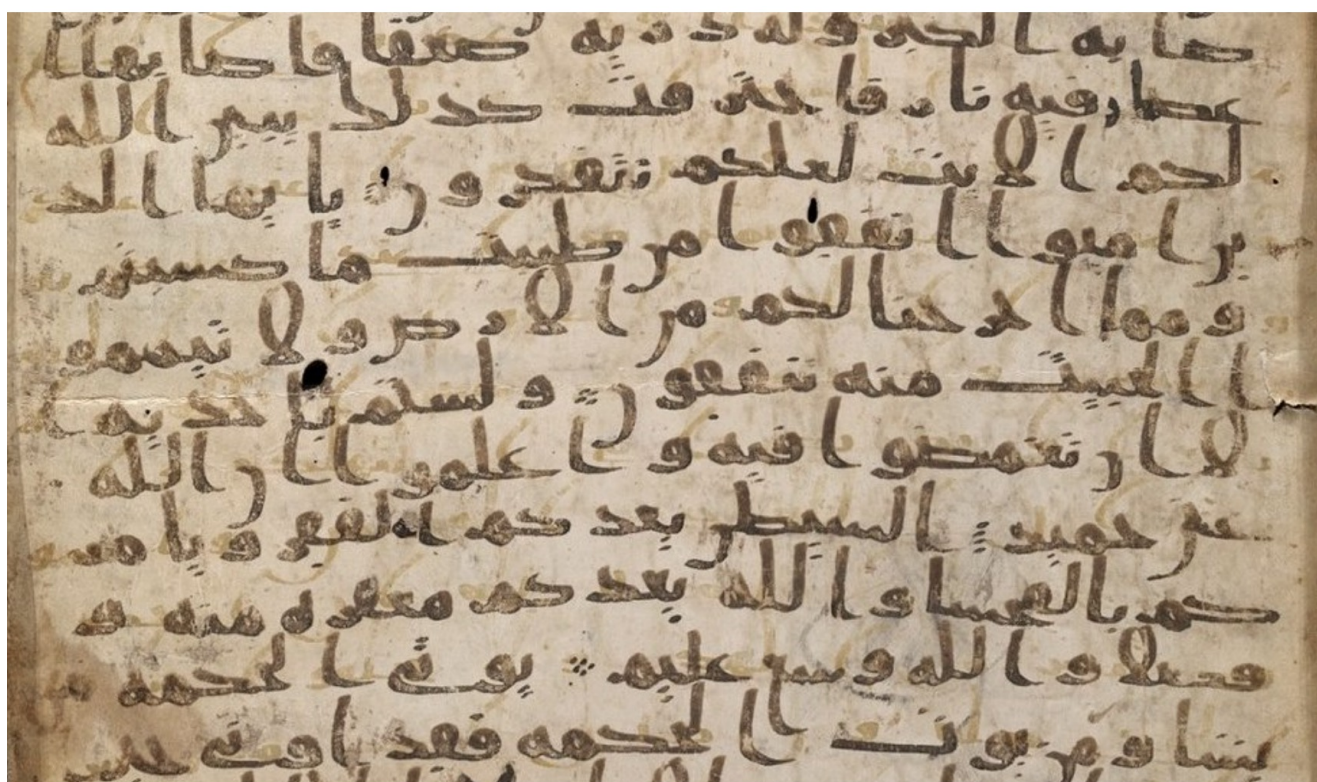 صابه الكبر وله ذرية ضعفا فاصابها ا
عصار فيه نار فاحترقت كذلك يبين الله
لكم الايت لعلكم تتفكرون يايها الذ
ين امنوا انفقوا من طيبت ما كسبتم
ومما اخرجنا لكم من الارض ولا تيممو
ا الخبيث منه تنفقون ولستم باخذيه ا
لا ان تغمضوا فيه واعلموا ان الله
غني حميد الشيطن يعدكم الفقر ويامر
كم بالفحشا والله يعدكم مغفره منه و
فضلا والله وسع عليم يوتي الحكمه من
يشا ومن يوت الحكمه فقد اوتي خير